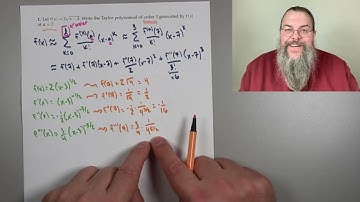 1. Let f(x) = 2√x-3. Write the Taylor polynomial of order 3 generated by f(x)
at a = 7.
f(x) ≈ ∑ k=0 3 f^(k)(a)/k! (x-a)^k ≈ ∑ k=0 3 f^(k)(7)/k! (x-7)^k
≈ f(7) + f'(7)(x-7) + f''(7)/2 (x-7)² + f'''(7)/3! (x-7)³
=6
f(x) = 2(x-3)^1/2 ⇝ f(7) = 2√4 = 4
f'(x) = (x-3)^-1/2 ⇝ f'(7) = 1/√4 = 1/2
f''(x) = -1/2(x-3)^-3/2 ⇝ f''(7) = -1/2 · 1/4^3/2 = -1/16
f'''(x) = 3/4(x-3)^-5/2 ⇝ f'''(7) = 3/4 · 1/4^5/2